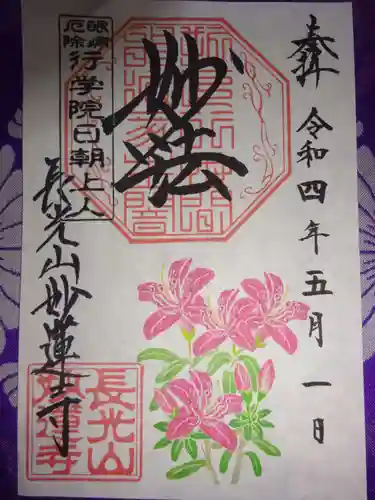 奉拝
令和四年五月一日
妙法
眼病
厄除
行学院日朝上人
長光山妙蓮寺
長光山
妙蓮寺